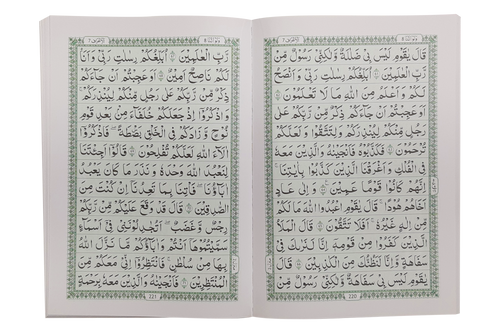 قَالَ يٰقَوْمِ لَيْسَ بِيْ ضَلٰلَةٌ وَّلٰكِنِّيْ رَسُوْلٌ مِّنْ
رَّبِّ الْعٰلَمِيْنَ ۝ اُبَلِّغُكُمْ رِسٰلٰتِ رَبِّيْ وَاَنْصَحُ
لَكُمْ وَاَعْلَمُ مِنَ اللّٰهِ مَا لَا تَعْلَمُوْنَ ۝
اَوَعَجِبْتُمْ اَنْ جَآءَكُمْ ذِكْرٌ مِّنْ رَّبِّكُمْ عَلٰى
رَجُلٍ مِّنْكُمْ لِيُنْذِرَكُمْ وَلِتَتَّقُوْا وَلَعَلَّكُمْ
تُرْحَمُوْنَ ۝ فَكَذَّبُوْهُ فَاَنْجَيْنٰهُ وَالَّذِيْنَ مَعَهٗ
فِي الْفُلْكِ وَاَغْرَقْنَا الَّذِيْنَ كَذَّبُوْا بِاٰيٰتِنَا
اِنَّهُمْ كَانُوْا قَوْمًا عَمِيْنَ ۝ وَاِلٰى عَادٍ
اَخَاهُمْ هُوْدًا قَالَ يٰقَوْمِ اعْبُدُوا اللّٰهَ مَا لَكُمْ
مِّنْ اِلٰهٍ غَيْرُهٗ اَفَلَا تَتَّقُوْنَ ۝ قَالَ الْمَلَاُ
الَّذِيْنَ كَفَرُوْا مِنْ قَوْمِهٖٓ اِنَّا لَنَرٰىكَ فِيْ
سَفَاهَةٍ وَّاِنَّا لَنَظُنُّكَ مِنَ الْكٰذِبِيْنَ ۝ قَالَ
يٰقَوْمِ لَيْسَ بِيْ سَفَاهَةٌ وَّلٰكِنِّيْ رَسُوْلٌ مِّنْ
220
رَّبِّ الْعٰلَمِيْنَ ۝ اُبَلِّغُكُمْ رِسٰلٰتِ رَبِّيْ وَاَنَا
لَكُمْ نَاصِحٌ اَمِيْنٌ ۝ اَوَعَجِبْتُمْ اَنْ جَآءَكُمْ
ذِكْرٌ مِّنْ رَّبِّكُمْ عَلٰى رَجُلٍ مِّنْكُمْ لِيُنْذِرَكُمْ
وَاذْكُرُوْٓا اِذْ جَعَلَكُمْ خُلَفَآءَ مِنْ بَعْدِ قَوْمِ
نُوْحٍ وَّزَادَكُمْ فِي الْخَلْقِ بَصْۜطَةً فَاذْكُرُوْٓا
اٰلَآءَ اللّٰهِ لَعَلَّكُمْ تُفْلِحُوْنَ ۝ قَالُوْٓا اَجِئْتَنَا
لِنَعْبُدَ اللّٰهَ وَحْدَهٗ وَنَذَرَ مَا كَانَ يَعْبُدُ
اٰبَآؤُنَا فَاْتِنَا بِمَا تَعِدُنَآ اِنْ كُنْتَ مِنَ
الصّٰدِقِيْنَ ۝ قَالَ قَدْ وَقَعَ عَلَيْكُمْ مِّنْ رَّبِّكُمْ
رِجْسٌ وَّغَضَبٌ اَتُجَادِلُوْنَنِيْ فِيْٓ اَسْمَآءٍ
سَمَّيْتُمُوْهَآ اَنْتُمْ وَاٰبَآؤُكُمْ مَّا نَزَّلَ اللّٰهُ
بِهَا مِنْ سُلْطٰنٍ فَانْتَظِرُوْٓا اِنِّيْ مَعَكُمْ مِّنَ
الْمُنْتَظِرِيْنَ ۝ فَاَنْجَيْنٰهُ وَالَّذِيْنَ مَعَهٗ بِرَحْمَةٍ
221